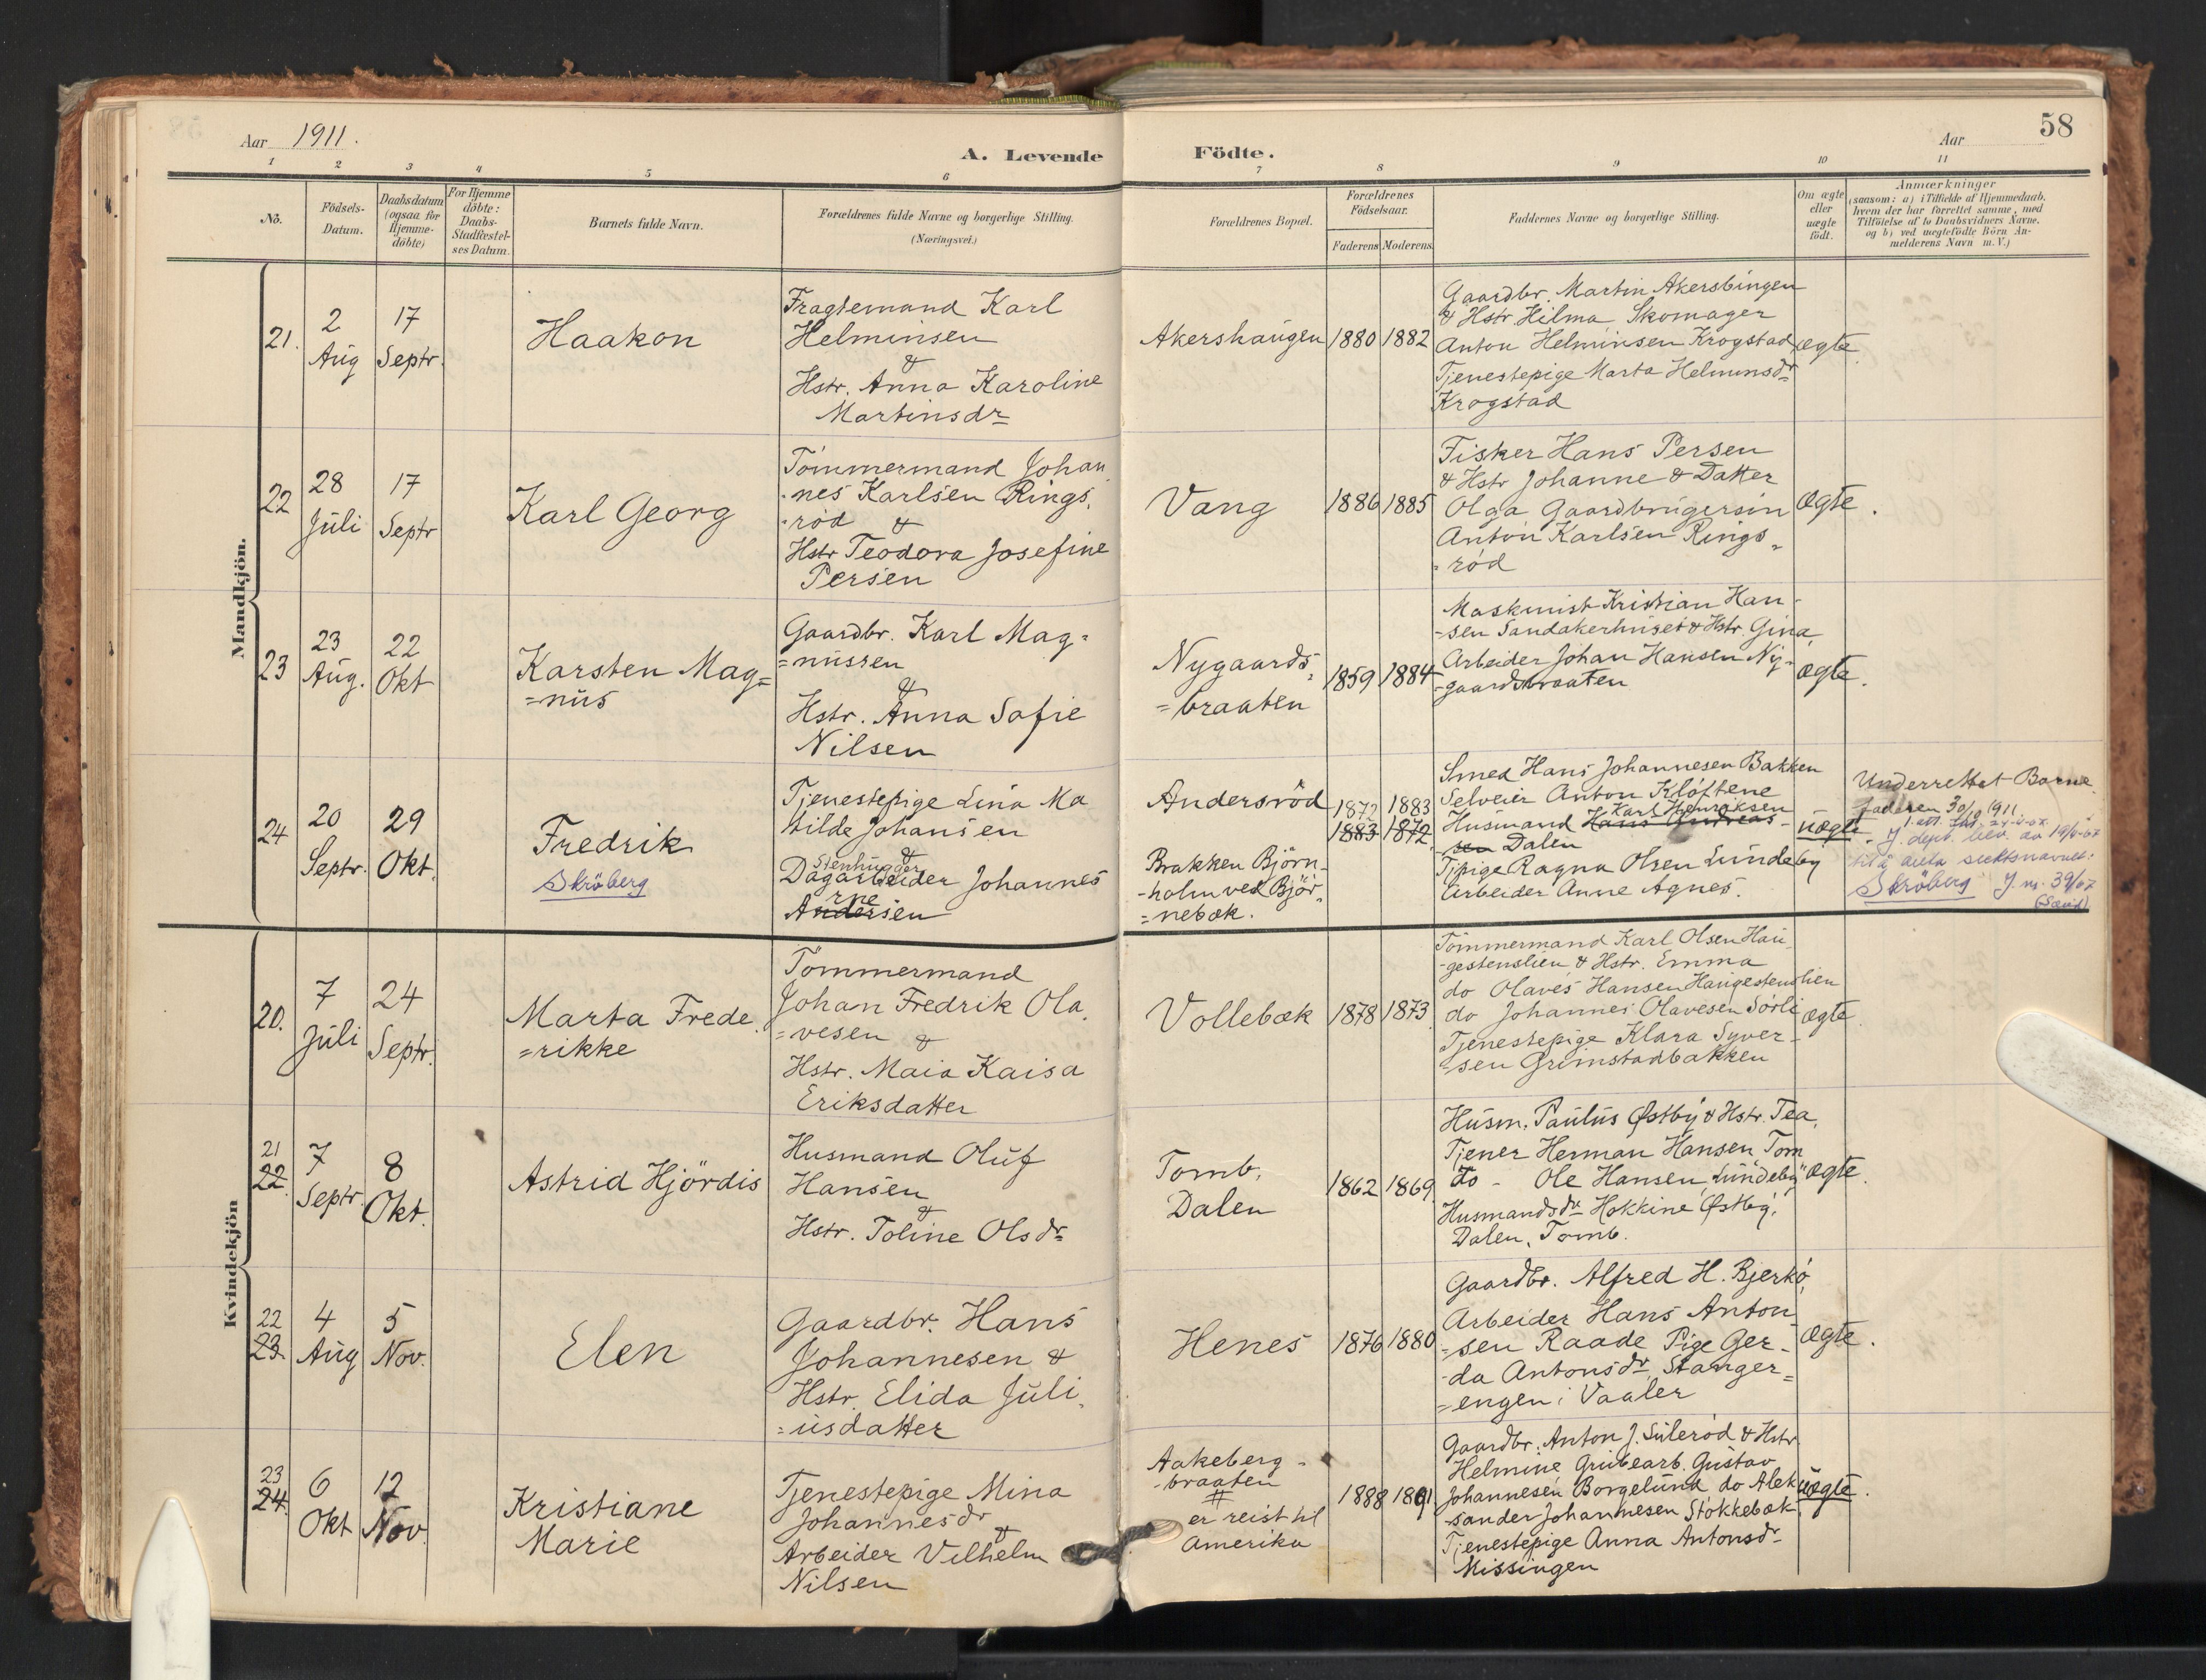 Aar 1911.
A. Levende
Födte.
Aar
58
1 2 3 4 5 6 7 8 9 10 11
No.
Födsels-
Datum.
Daabsdatum
(ogsaa for
Hjemme-
döbte)
For Hjemme
döbte:
Daabs-
Stadfæstel-
ses Datum.
Barnets fulde Navn.
Forældrenes fulde Navne og borgerlige Stilling.
(Næringsvei.)
Forældrenes Bopæl.
Forældrenes
Födselsaar.
Faderens Moderens
Faddernes Navne og borgerlige Stilling.
Om ægte
eller
uægte
födt.
Anmærkninger
(saasom: a) i Tilfælde af Hjemmedaab,
hvem der har forrettet samme, med
Tilföielse af to Daabsvidners Navne.
og b) ved uægtefödte Börn An-
melderens Navn m. V.)
Mandkjön.
21.
2
Aug
17
Septr.
Haakon
Fragtemand Karl
Helminsen
&
Hstr. Anna Karoline
Martinsdr
Akershaugen
1880 1882
Gaardbr. Martin Akersbingen
& Hstr. Hilma, Skomager
Anton Helminsen Krogstad
Tjenestepige Marta Helminsdr
Krogstad
ægte.
22
28
Juli
17
Septr
Karl Georg
Tömmermand Johan
-nes Karlsen Rings,
-röd &
Hstr Teodora Josefine
Persen
Vang
1886 1885
Fisker Hans Persen
& Hstr Johanne & Datter
Olga Gaardbrugersön
Anton Karlsen Rings-
-röd
Ægte.
23
23
Aug.
22
Okt
Karsten Mag=
=nus
Gaardbr. Karl Mag=
=nussen
&
Hstr. Anna Sofie
Nilsen
Nygaards-
=braaten
1859 1884
Maskinist Kristian Han-
-sen Sandakerhuset & Hstr. Gina,
Arbeider Johan Hansen Ny-
-gaardsbraaten
Ægte.
24
20
Septr.
29
Okt.
Fredrik
Skröberg
Tjenestepige Lina Ma
tilde Johansen
&
Stenhugger
Dagarbeider Johannes
rne
Andersen
Andersröd
Brakken Björn-
-holm ved Björ-
=nebæk.
1872 1883
1883 1872
Smed Hans Johannesen Bakken
Selveier Anton Klöftene
Karl Henriksen
Husmand Hans Andreas-
sen Dalen
Tjpige Ragna Olsen Lundeby
Arbeider Anne Agnes.
uægte
Underrettet Barne-
faderen 30/10 1911.
J. dept. bev. av 19/4-67
til å anta slektsnavnet:
Skröberg J.nr. 39/67
Kvindekjön
20.
7
Juli
24
Septr.
Marta Frede-
=rikke
Tömmermand
Johan Fredrik Ola-
=vesen &
Hstr. Maia Kaisa
Eriksdatter
Vollebæk
1878 1873
Tömmermand Karl Olsen Hau-
-gestenslien & Hstr. Emma
do Olaves Hansen Haugestenslien
do Johannes Olavesen Sörli
Tjenestepige Klara Syver-
-sen Grimstadbakken
ægte.
21
22.
7
Septr.
8
Okt.
Astrid Hjördis
Husmand Oluf
Hansen
&
Hstr. Toline Olsdr
Tomb,
Dalen
1862 1869
Husm. Paulus Østby & Hstr. Tea,
Tjener Herman Hansen Tom
do - Ole Hansen, Lundeby
Husmandsdr Hokkine Østby,
Dalen, Tomb.
Ægte.
22
23
4
Aug
5
Nov.
Elen
Gaardbr. Hans
Johannesen &
Hstr. Elida Juli-
=usdatter
Henes
1876 1880
Gaardbr. Alfred H. Bjerkö,
Arbeider Hans Anton-
-sen Raade Pige Ger-
-da Antonsdr, Stanger=
=engen i Vaaler
Ægte.
23
24.
6
Okt
12
Nov.
Kristiane
Marie
Tjenestepige Mina
Johannesdr
&
Arbeider Vilhelm
Nilsen
Aakeberg-
-braaten
#
er reist til
Amerika
1888 1891
Gaardbr. Anton J. Suleröd & Hstr
Helmine Grubearb. Gustav
Johannesen Borgelund do Alek-
sander Johannesen Stokkebæk
Tjenestepige Anna Antonsdr
Missingen
uægte.